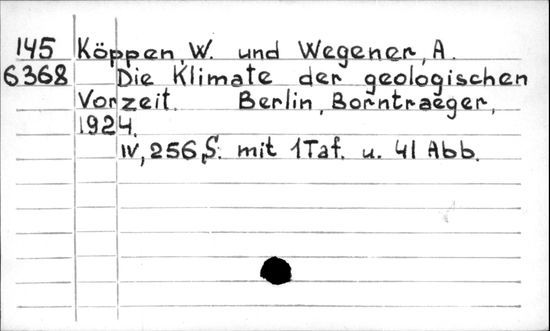 145 Köppen, W. und Wegener, A.
6368 Die Klimate der geologischen
Vorzeit. Berlin, Borntraeger,
1924.
IV, 256 S. mit 1 Taf. u. 41 Abb.